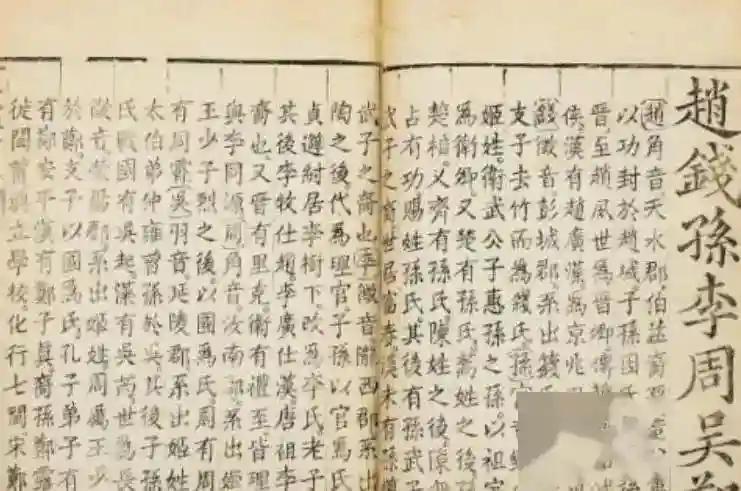 趙錢孫李周吳鄭
趙角音天水郡伯益裔
以功封於趙城子孫因氏後
晉至趙夙世為晉卿傳
侯漢有趙廣漢為京兆
錢徵音彭城郡系出籛
支子去竹而為錢氏孫宮音
姬姓衛武公子惠孫之孫以祖字
為衛卿又楚有孫氏蒍姓之後孫
楚相又齊有孫氏陳姓之後陳無
占有功賜姓孫氏其後有孫武子
武子之裔世居富春漢末有孫
武子之裔也李徵音隴西郡系出
陶之後代為理官子孫以官為氏
貞避紂居李樹下改為李氏老子
其後李牧仕趙李廣仕漢唐祖李
裔也又晉有里克衛有禮至皆理
與李同源周角音汝南郡系出姬
王少子烈之後以國為氏周有周
有周霸吳羽音延陵郡系出姬姓
太伯弟仲雍曾孫於吳其後子孫
氏戰國有吳起漢有吳芮世為長
徵音滎陽郡系出姬姓周厲王少
於鄭支子以國為氏孔子弟子有
有鄭安平漢有鄭子真裔孫鄭露
徙閩莆興立學校化行七閩宋鄭